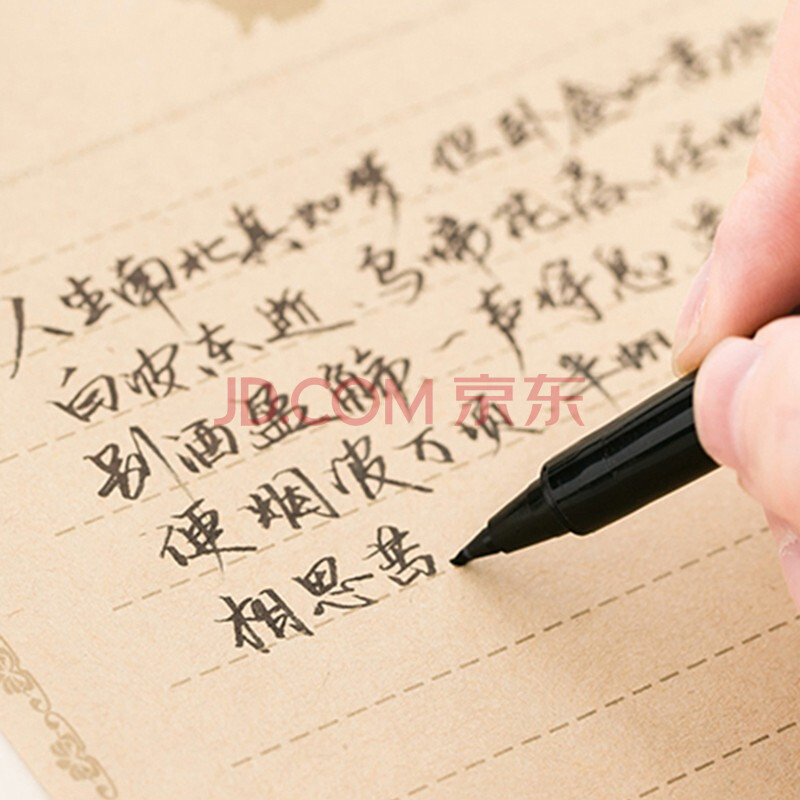 人生南北真如梦、但卧金山高
白波东逝、鸟啼花落、任他
别酒盈觞、一声将息
便烟波万顷、半帆
相思苦
JD.COM 京东